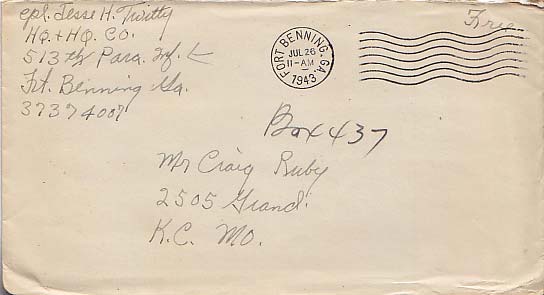 cpl. Jesse H. Twitty
HQ. + HQ. CO.
513th Para. Inf.
Ft. Benning Ga.
37374007
Free
FORT BENNING, GA.
JUL 26
11-AM
1943
Box 437
Mr Craig Ruby
2505 Grand.
K.C. MO.